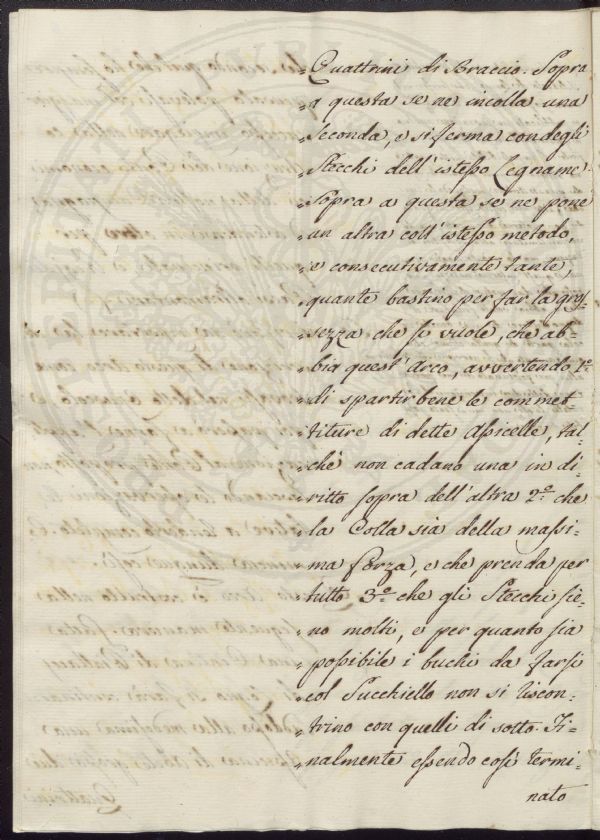 Quattrini di Braccio. Sopra
a questa se ne incolla una
seconda, e si ferma con degli
Stecchi dell'istesso Legname.
Sopra a questa se ne pone
un altra coll'istesso metodo,
e consecutivamente tante,
quante bastino per far la gros-
sezza che si vuole, che ab-
bia quest'Arco, avvertendo 1º
di spartir bene le commet-
titure di dette Assicelle, tal-
chè non cadano una in di-
ritto sopra dell'altra 2º che
la Colla sia della massi-
ma forza, e che prenda per
tutto 3º che gli Stecchi sie-
no molti, e per quanto sia
possibile i buchi da farsi
col Succhiello non si riscon-
trino con quelli di sotto. Fi-
nalmente essendo così termi-
nato